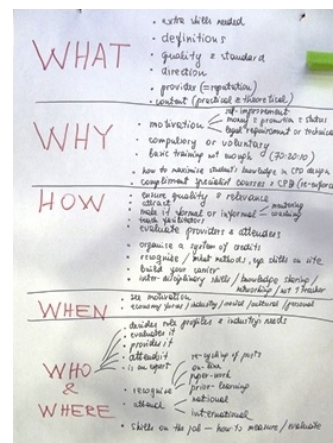 • extra skills needed
• definitions
WHAT
• quality & standard
• direction
• provider (=reputation)
• content (practical & theoretical)
WHY
self-improvement
• motivation
money & promotion & status
legal requirement or technical
• compulsory or voluntary
• basic training not enough (70:20:10)
• how to maximise students knowledge in CPD design
• compliment specialist courses & CPD
HOW
• ensure quality & relevance
attract
mentoring
• make it formal or informal
coaching
• teach facilitators
• evaluate providers & attendees
• organise a system of credits
• recognise / what methods, up skills on site
• build your career
• inter-disciplinary skills / knowledge sharing /
networking / not 1 teacher
WHEN
• see motivation
• economy forces / industry / social / cultural / personal
• decides role profiles & industry needs
• evaluates it
• provides it
• attends it
• is an expert
WHO
&
WHERE
re-cycling of posts
on-line
paper-work
• recognise
prior-learning
• attend
national
international
• skills on the job – how to measure / evaluate